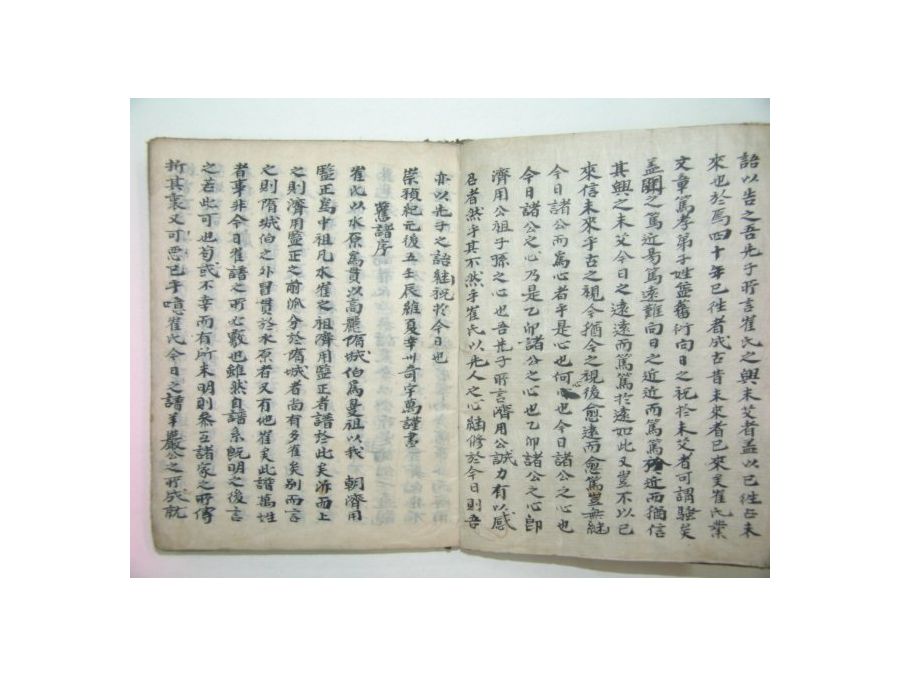 詒以告之吾先子所言崔氏之興未艾者盖以已徃占未
來也於焉四十年已徃者成古昔未來者已來矣崔氏業
文章篤孝弟子姓盤蕃衍向日之祝於未艾者可謂驗矣
盖聞之篤近易篤遠難向日之近近而篤篤近而猶信
其興之未艾今日之遠遠而篤篤於遠如此又豈不以已
來信未來乎古之視今猶今之視後愈遠而愈篤豈無繼
今日諸公而爲心者乎是心也何心也今日諸公之心也
今日諸公之心乃是乙卯諸公之心也乙卯諸公之心卽
濟用公祖子孫之心也吾先子所言濟用公誠力有以感
召者然乎其不然乎崔氏以先人之心継修於今日則吾
亦以先子之詒継祝於今日也
崇禎紀元後五壬辰維夏幸州奇宇萬謹書
舊譜序
崔氏以水原爲貫以高麗隋城伯爲曼祖以我 朝濟用
監正爲中祖凡水崔之祖濟用監正者譜於此矣泝而上
之則濟用監正之前派分於隋城者尚有多崔矣別而言
之則隋城伯之外冒貫於水原者又有他崔矣此譜萬姓
者事非今日崔譜之所必覈也雖然自譜系旣明之後言
之若此可也苟或不幸而有所未明則叅互諸家之所傳
折其衷又可悪已乎噫崔氏今日之譜羊嚴公之所成就